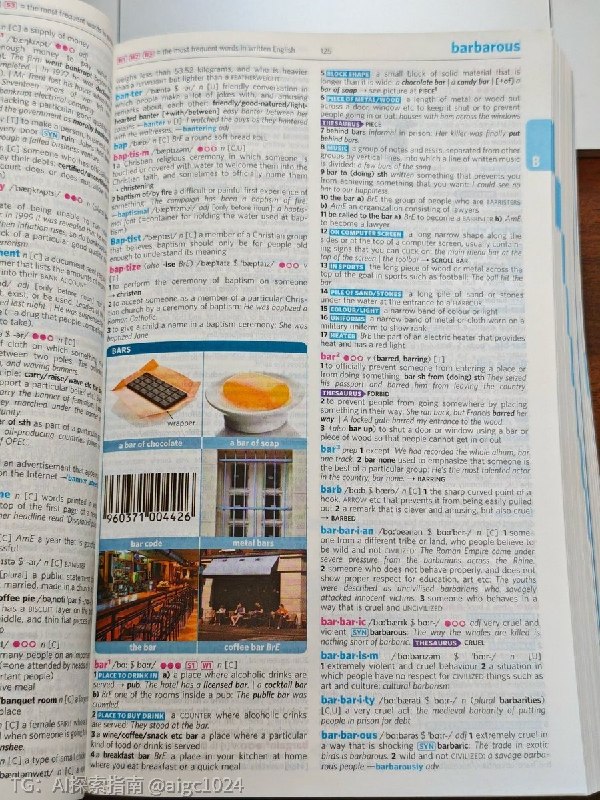 S3 = the most frequent words
n [C] a supply of money
The firm went bankrupt
Mr Trent lost his house
make a person
SYN ruin
through a failed business
state of being unable
In 1999 it was
a particular good
ment n [C] a document
into their BANK ACCOUNT
last night
(= a drug that people
to take).
cloth on which something
between two poles
and waving banners
carry/raise/wave etc
support a particular
the banner of
of sth as part of a particular
oil-producing countries
of OPEC.
an advertisement that
on the Internet
n [C] words printed
top of the first page of a
AmE a year that is good
a public statement
married, made in a church
coffee pie
has a BISCUIT layer on the
middle, and thin flat pieces
many people on an important
(=one attended by heads
important people)
ive meal
banquet room n [C] a large
place
[C] a female SPIRIT whose
when someone is going
banshee.
n [C] a type of small chicken
W1 W2 W3 = the most frequent words in written English
125
barbarous
weighs less than 53.52 kilograms, and who is heavier
than a FLYWEIGHT but lighter than a FEATHERWEIGHT
ban·ter /ˈbæntə $ -ər/ n [U] friendly conversation in
which people make a lot of jokes with, and amusing
remarks about, each other: friendly/good-natured/light-
hearted banter [+with/between] easy banter between her
and the waitresses. —bantering adj
bap /bæp/ n [C] BrE a round soft bread ROLL
bap·tis·m /ˈbæptɪzəm/ n [C,U]
1 a Christian religious ceremony in which someone is
touched or covered with water to welcome them into the
Christian faith, and sometimes to officially name them
→ christening
2 baptism of/by fire a difficult or painful first experience of
something: The campaign has been a baptism of fire.
—baptismal adj [only before noun]: a baptis-
mal font (=container for holding the water used at bap-
tisms)
Bap·tist /ˈbæptɪst/ n [C] a member of a Christian group
that believes baptism should only be for people old
enough to understand its meaning
bap·tize (also -ise BrE) /bæpˈtaɪz $ ˈbæptaɪz/ v
[T]
1 to perform the ceremony of baptism on someone
→ christen
2 to accept someone as a member of a particular Chris-
tian church by a ceremony of baptism: He was baptized a
Roman Catholic.
3 to give a child a name in a baptism ceremony: She was
baptized Jane.
BARS
wrapper
a bar of chocolate
a bar of soap
960371 004426
bar code
metal bars
the bar
coffee bar BrE
bar¹ /bɑː $ bɑːr/ S1 W1 n [C]
1 PLACE TO DRINK IN a) a place where alcoholic drinks are
served → pub: The hotel has a licensed bar. | a cocktail bar
b) BrE one of the rooms inside a pub: The public bar was
crowded
2 PLACE TO BUY DRINK a COUNTER where alcoholic drinks
are served: They stood at the bar.
3 a wine/coffee/snack etc bar a place where a particular
kind of food or drink is served
4 a breakfast bar BrE a place in your kitchen at home
where you eat breakfast or a quick meal
5 BLOCK SHAPE a small block of solid material that is
longer than it is wide: a chocolate bar | a candy bar | [+of] a
bar of soap → see picture at PIECE¹
6 PIECE OF METAL/WOOD a length of metal or wood put
across a door, window etc to keep it shut or to prevent
people going in or out: houses with bars across the windows
THESAURUS PIECE
7 behind bars informal in prison: Her killer was finally put
behind bars.
8 MUSIC a group of notes and RESTS, separated from other
groups by vertical lines, into which a line of written music
is divided: a few bars of the song
9 bar to (doing) sth written something that prevents you
from achieving something that you want: I could see no
bar to our happiness.
10 the bar a) BrE the group of people who are BARRISTERS
b) AmE an organization consisting of lawyers
11 be called to the bar a) BrE to become a BARRISTER b) AmE
to become a lawyer
12 ON COMPUTER SCREEN a long narrow shape along the
sides or at the top of a computer screen, usually contain-
ing signs that you can CLICK on: the main menu bar at the
top of the screen | the toolbar → SCROLL BAR
13 IN SPORTS the long piece of wood or metal across the
top of the goal in sports such as football: The ball hit the
bar.
14 PILE OF SAND/STONES a long pile of sand or stones
under the water at the entrance to a HARBOUR
15 COLOUR/LIGHT a narrow band of colour or light
16 UNIFORMS a narrow band of metal or cloth worn on a
military uniform to show rank
17 HEATER BrE the part of an electric heater that provides
heat and has a red light
bar² v (barred, barring) [T]
1 to officially prevent someone from entering a place or
from doing something: bar sb from (doing) sth They seized
his passport and barred him from leaving the country.
THESAURUS FORBID
2 to prevent people from going somewhere by placing
something in their way: She ran back, but Francis barred her
way. | A locked gate barred my entrance to the wood.
3 (also bar up) to shut a door or window using a bar or
piece of wood so that people cannot get in or out
bar³ prep 1 except: We had recorded the whole album, bar
one track. 2 bar none used to emphasize that someone is
the best of a particular group: He's the most talented actor
in the country, bar none. → BARRING
barb /bɑːb $ bɑːrb/ n [C] 1 the sharp curved point of a
hook, ARROW etc that prevents it from being easily pulled
out 2 a remark that is clever and amusing, but also cruel
→ BARBED
bar·bar·i·an /bɑːˈbeəriən $ bɑːrˈber-/ n [C] 1 some-
one from a different tribe or land, who people believe to
be wild and not CIVILIZED: The Roman Empire came under
severe pressure from the barbarians across the Rhine.
2 someone who does not behave properly, and does not
show proper respect for education, art etc: The youths
were described as uncivilised barbarians who savagely
attacked innocent victims. 3 someone who behaves in a
way that is cruel and UNCIVILIZED
bar·bar·ic /bɑːˈbærɪk $ bɑːr-/ adj very cruel and
violent SYN barbarous: The way the whales are killed is
nothing short of barbaric. THESAURUS CRUEL
bar·bar·is·m /ˈbɑːbərɪzəm $ ˈbɑːr-/ n [U]
1 extremely violent and cruel behaviour 2 a situation in
which people have no respect for CIVILIZED things such as
art and culture: cultural barbarism
bar·bar·i·ty /bɑːˈbærəti $ bɑːr-/ n (plural barbarities)
[C,U] a very cruel act: the medieval barbarity of putting
people in prison for debt
bar·bar·ous /ˈbɑːbərəs $ ˈbɑːr-/ adj 1 extremely cruel in
a way that is shocking SYN barbaric: The trade in exotic
birds is barbarous. 2 wild and not CIVILIZED: a savage barbar-
ous people —barbarously adv
B
TG: AI探索指南 @aigc1024